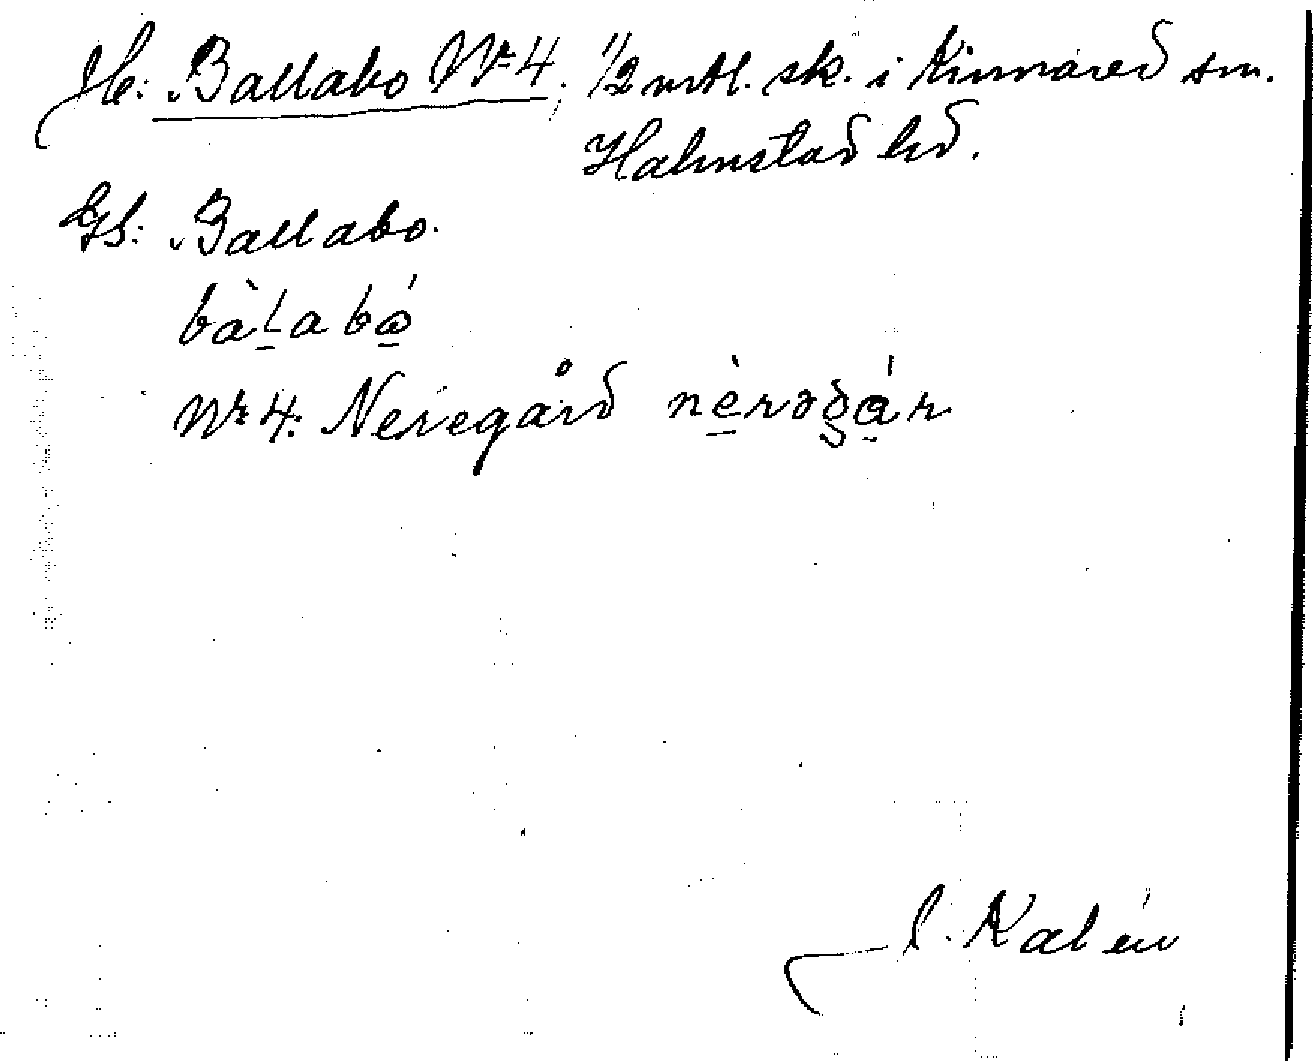 He: Ballabo Nr 4, 1/2 mtl. sk. i Kinnared sn.
Halmstad hd.
Gs: Ballabo.
Nr 4: Neregård
Kalén